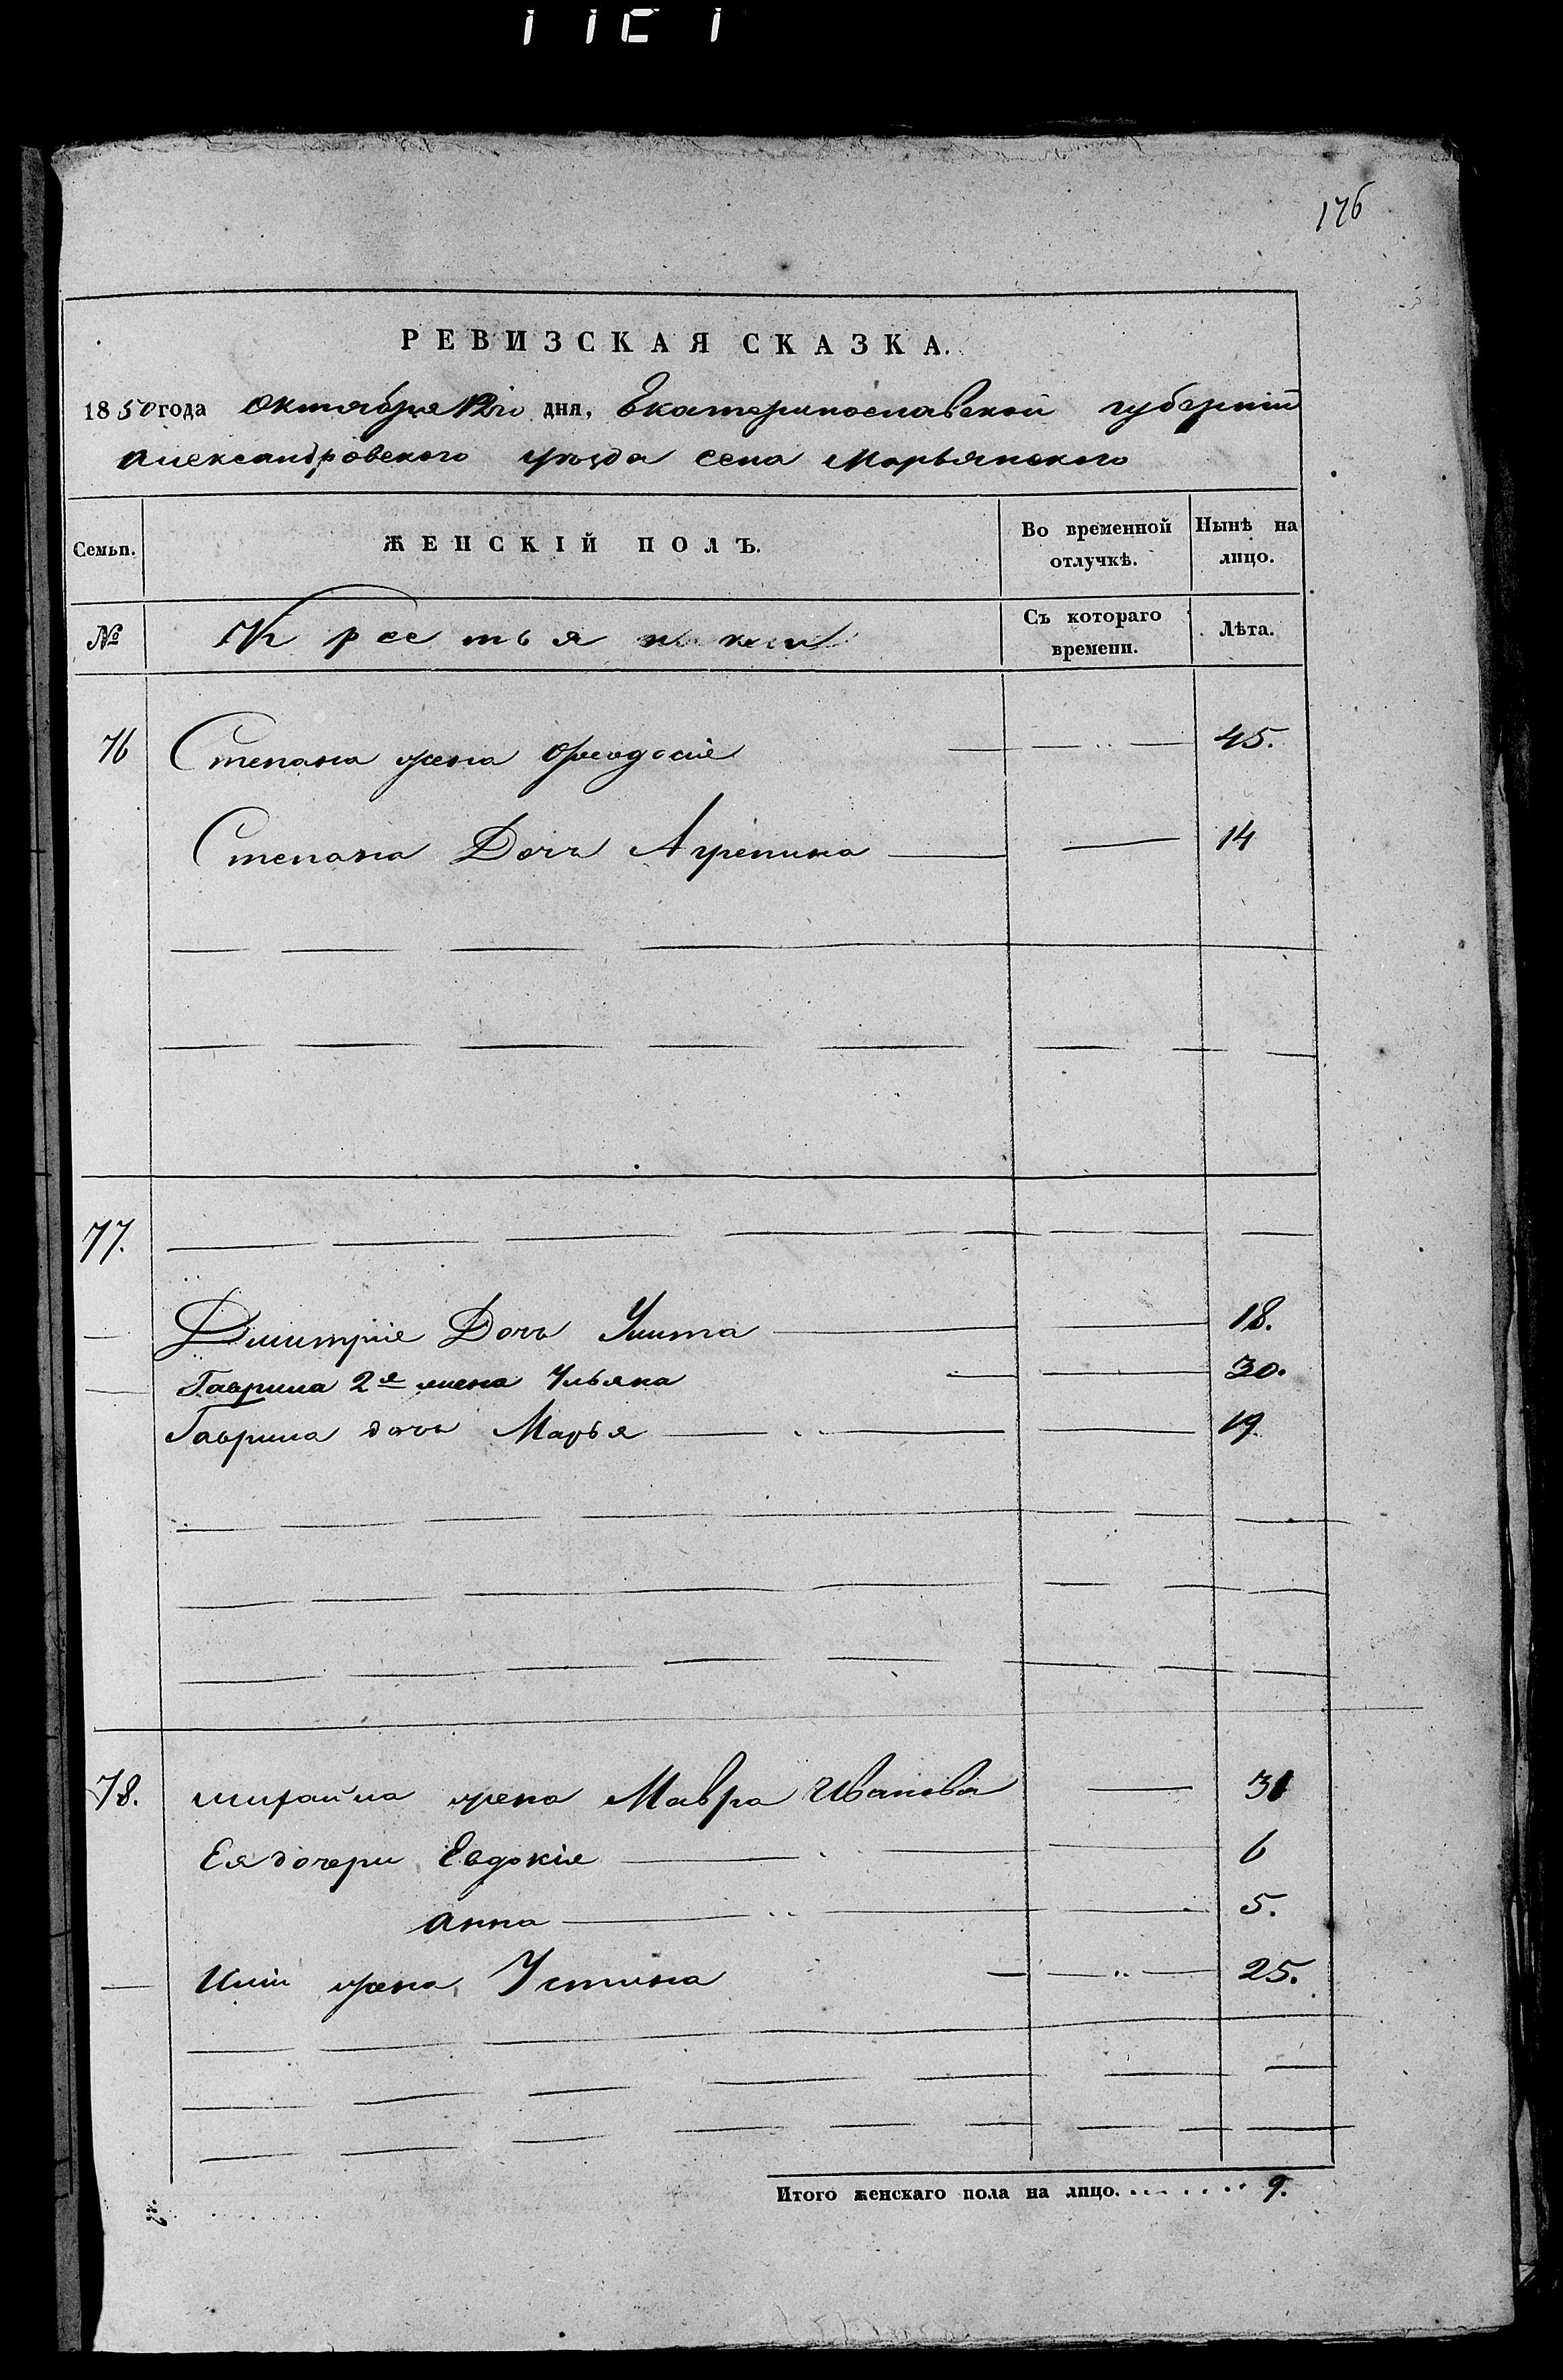 176
РЕВИЗСКАЯ СКАЗКА.
1850 года Октября 12го дня, Екатеринославской губернiи
Александровского уѣзда села Марьянского
Семьи. ЖЕНСКІЙ ПОЛЪ. Во временной отлучкѣ. Нынѣ на лицо.
№ Крестьянки Съ котораго времени. Лѣта.
76 Степана жена Феодосiя 45.
Степана Дочь Агрепина 14
77.
Дмитрiя Дочь Улита 18.
Гаврила 2я жена Ульяна 30.
Гаврила дочь Марья 19.
78. Михайла жена Мавра Иванова 31
Ея дочери Евдокiя 6
Анна 5.
жена Устина 25.
Итого женскаго пола на лицо. 9.